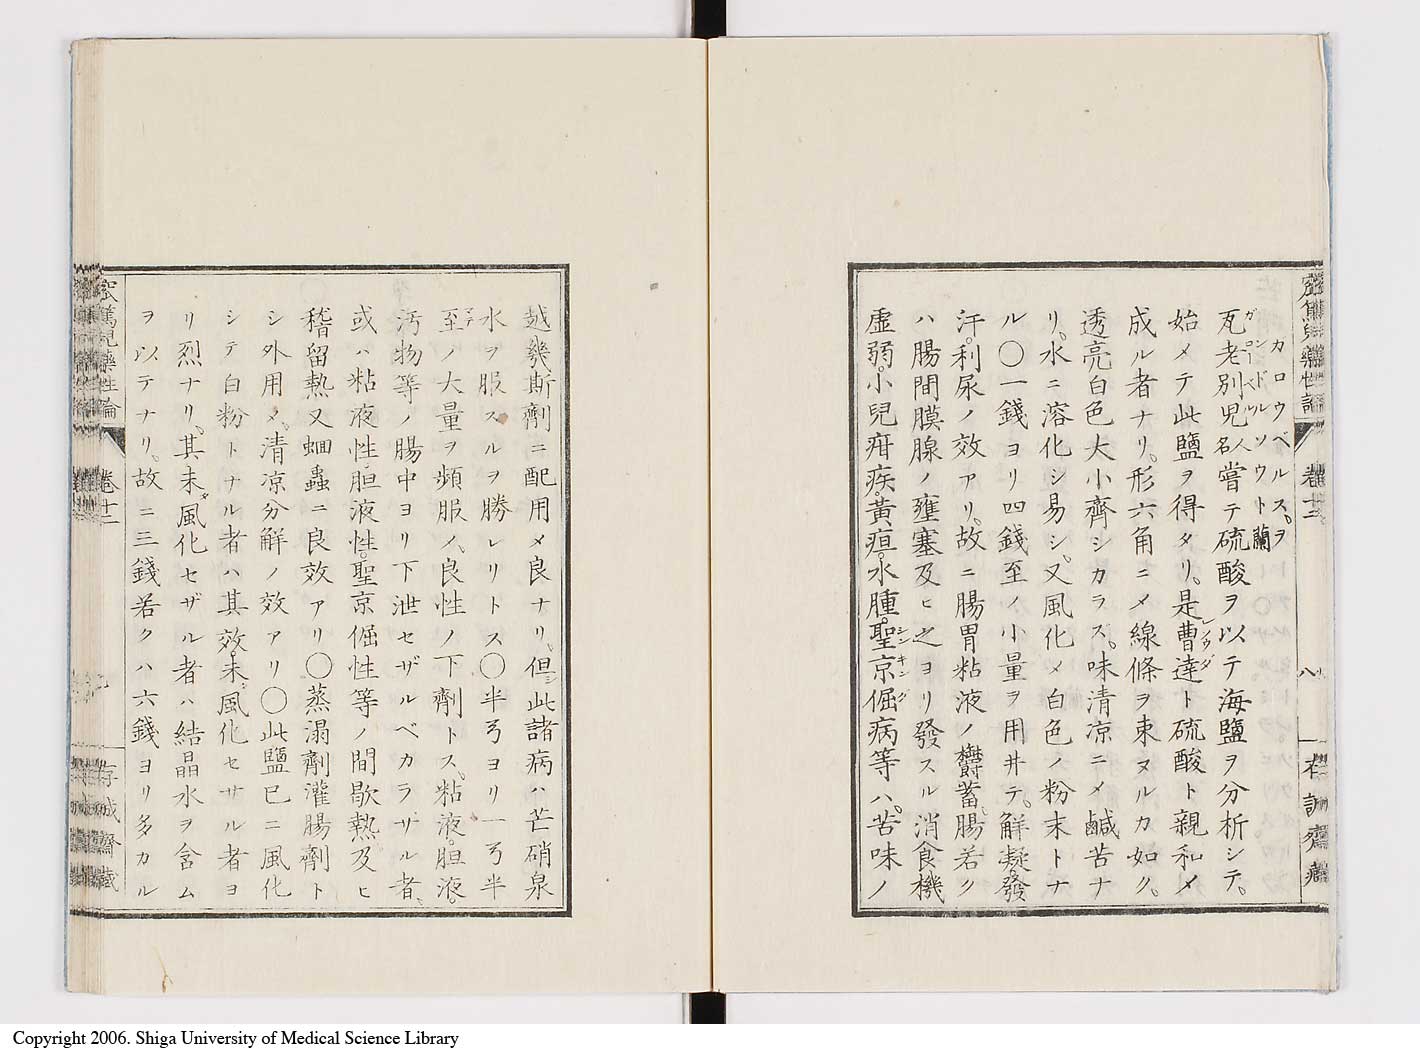 カロウベルス。ヲンドルソウト蘭
瓦老別児人名嘗テ硫酸ヲ以テ海鹽ヲ分析シテ。
ガローベル
始メテ此鹽ヲ得タリ。是曹達ト硫酸ト親和メ
成ル者ナリ。形六角ニメ線條ヲ束ヌルカ如ク。
透亮白色大小齊シカラス。味清凉ニメ鹹苦ナ
リ。水ニ溶化シ易シ。又風化メ白色ノ粉末トナ
ル〇一錢ヨリ四錢至ノ小量ヲ用井テ。觧凝。發
汗。利尿ノ效アリ。故ニ腸胃粘液ノ欝蓄。腸若ク
ハ腸間膜腺ノ壅塞及ヒ之ヨリ發スル消食機
虚弱。小兒疳疾。黄疸。水腫。聖京倔病等ハ。苦味ノ
シンキング
巻十二
八
越幾斯劑ニ配用メ良ナリ。但シ此諸病ハ芒硝泉
水ヲ服スルヲ勝レリトス〇半弓ヨリ一弓半
至ノ大量ヲ頻服メ。良性ノ下劑トス。粘液。胆液。
汚物等ノ腸中ヨリ下泄セザルベカラザル者。
或ハ粘液性。胆液性。聖京倔性等ノ間歇熱。及ヒ
稽留熱又蛔蟲ニ良效アリ〇蒸溻劑灌腸劑ト
シ外用メ。清凉分解ノ效アリ〇此鹽已ニ風化
シテ白粉トナル者ハ其效。未風化セサル者ヨ
リ烈ナリ。其未タ風化セザル者ハ結晶水ヲ含ム
ヲ以テナリ。故ニ三錢若クハ六錢ヨリ多カル
篤兒藥性論
巻十二
存誠齋藏